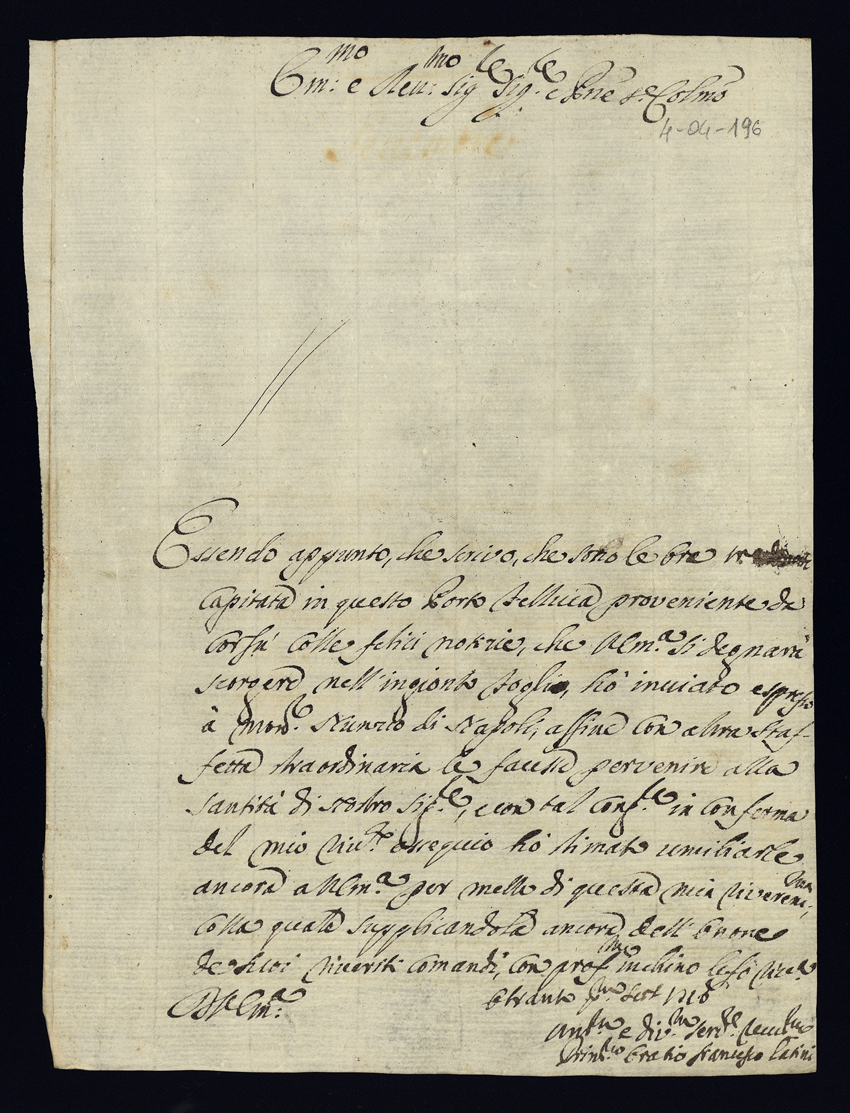 Em:mo e Reu:mo Sig:re Sig:re e Pne Colmo
4-04-196
Essendo appunto, che scrivo, che sono le ore
Capitata in questo Porto felluca proveniente da
Corfù colle felici notizie, che V Em:a si degnarà
scorgere nell'ingionto foglio, hò inuiato espresso
à Mons:e Nunzio di Napoli, affine con altra Staf-
fetta straordinaria le facesse pervenire alla
Santità di Nostro Sig:re, e con tal in conferma
del mio ossequio hò stimato umiliarle
ancora a V Em:a per mezzo di questa mia riverent:ma,
colla quale supplicandola ancora dell'onore
de suoi riveriti comandi, con prof:mo inchino le fò river:a
D V Em:a Otranto p:mo Sett 1716
e div:mo Ser:re
Oratio Francesco